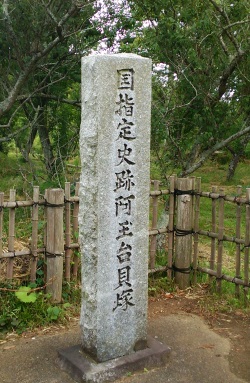 国指定史跡阿玉台貝塚